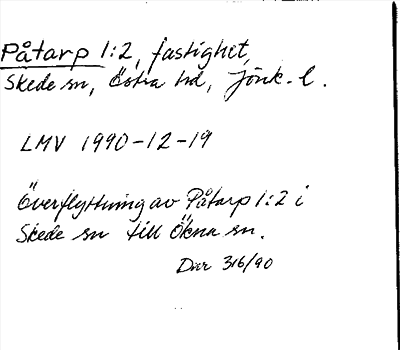 Påtarp 1:2, fastighet,
Skede sn, Östra hd, Jönk. l.
LMV 1990-12-19
Överflyttning av Påtarp 1:2 i
Skede sn till Ökna sn.
Dnr 316/90